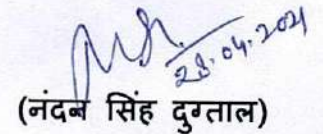 28.04.2021
(नंदन सिंह दुग्ताल)